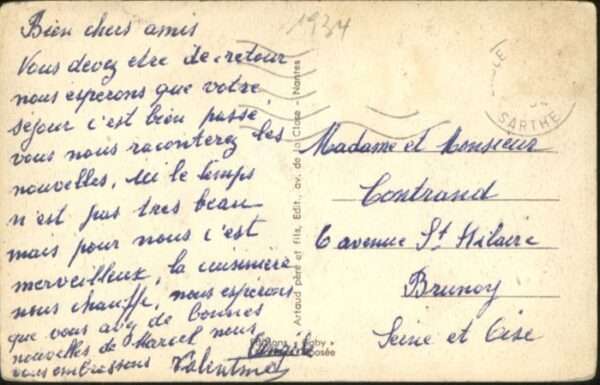 Bien chers amis
Vous devez etre de retour
nous esperons que votre
séjour c'est bien passé,
vous nous raconterez les
nouvelles, ici le temps
n'est pas tres beau
mais pour nous c'est
merveilleux, la cuisinière
nous chauffe, nous espérons
que vous avez de bonnes
nouvelles de Marcel nous
vous embrassons
1934
SARTHE
Artaud père et fils, Edit., av. de la Close - Nantes
Gaby
Madame et Monsieur
Contrand
6 avenue St Hilaire
Brunoy
Seine et Oise